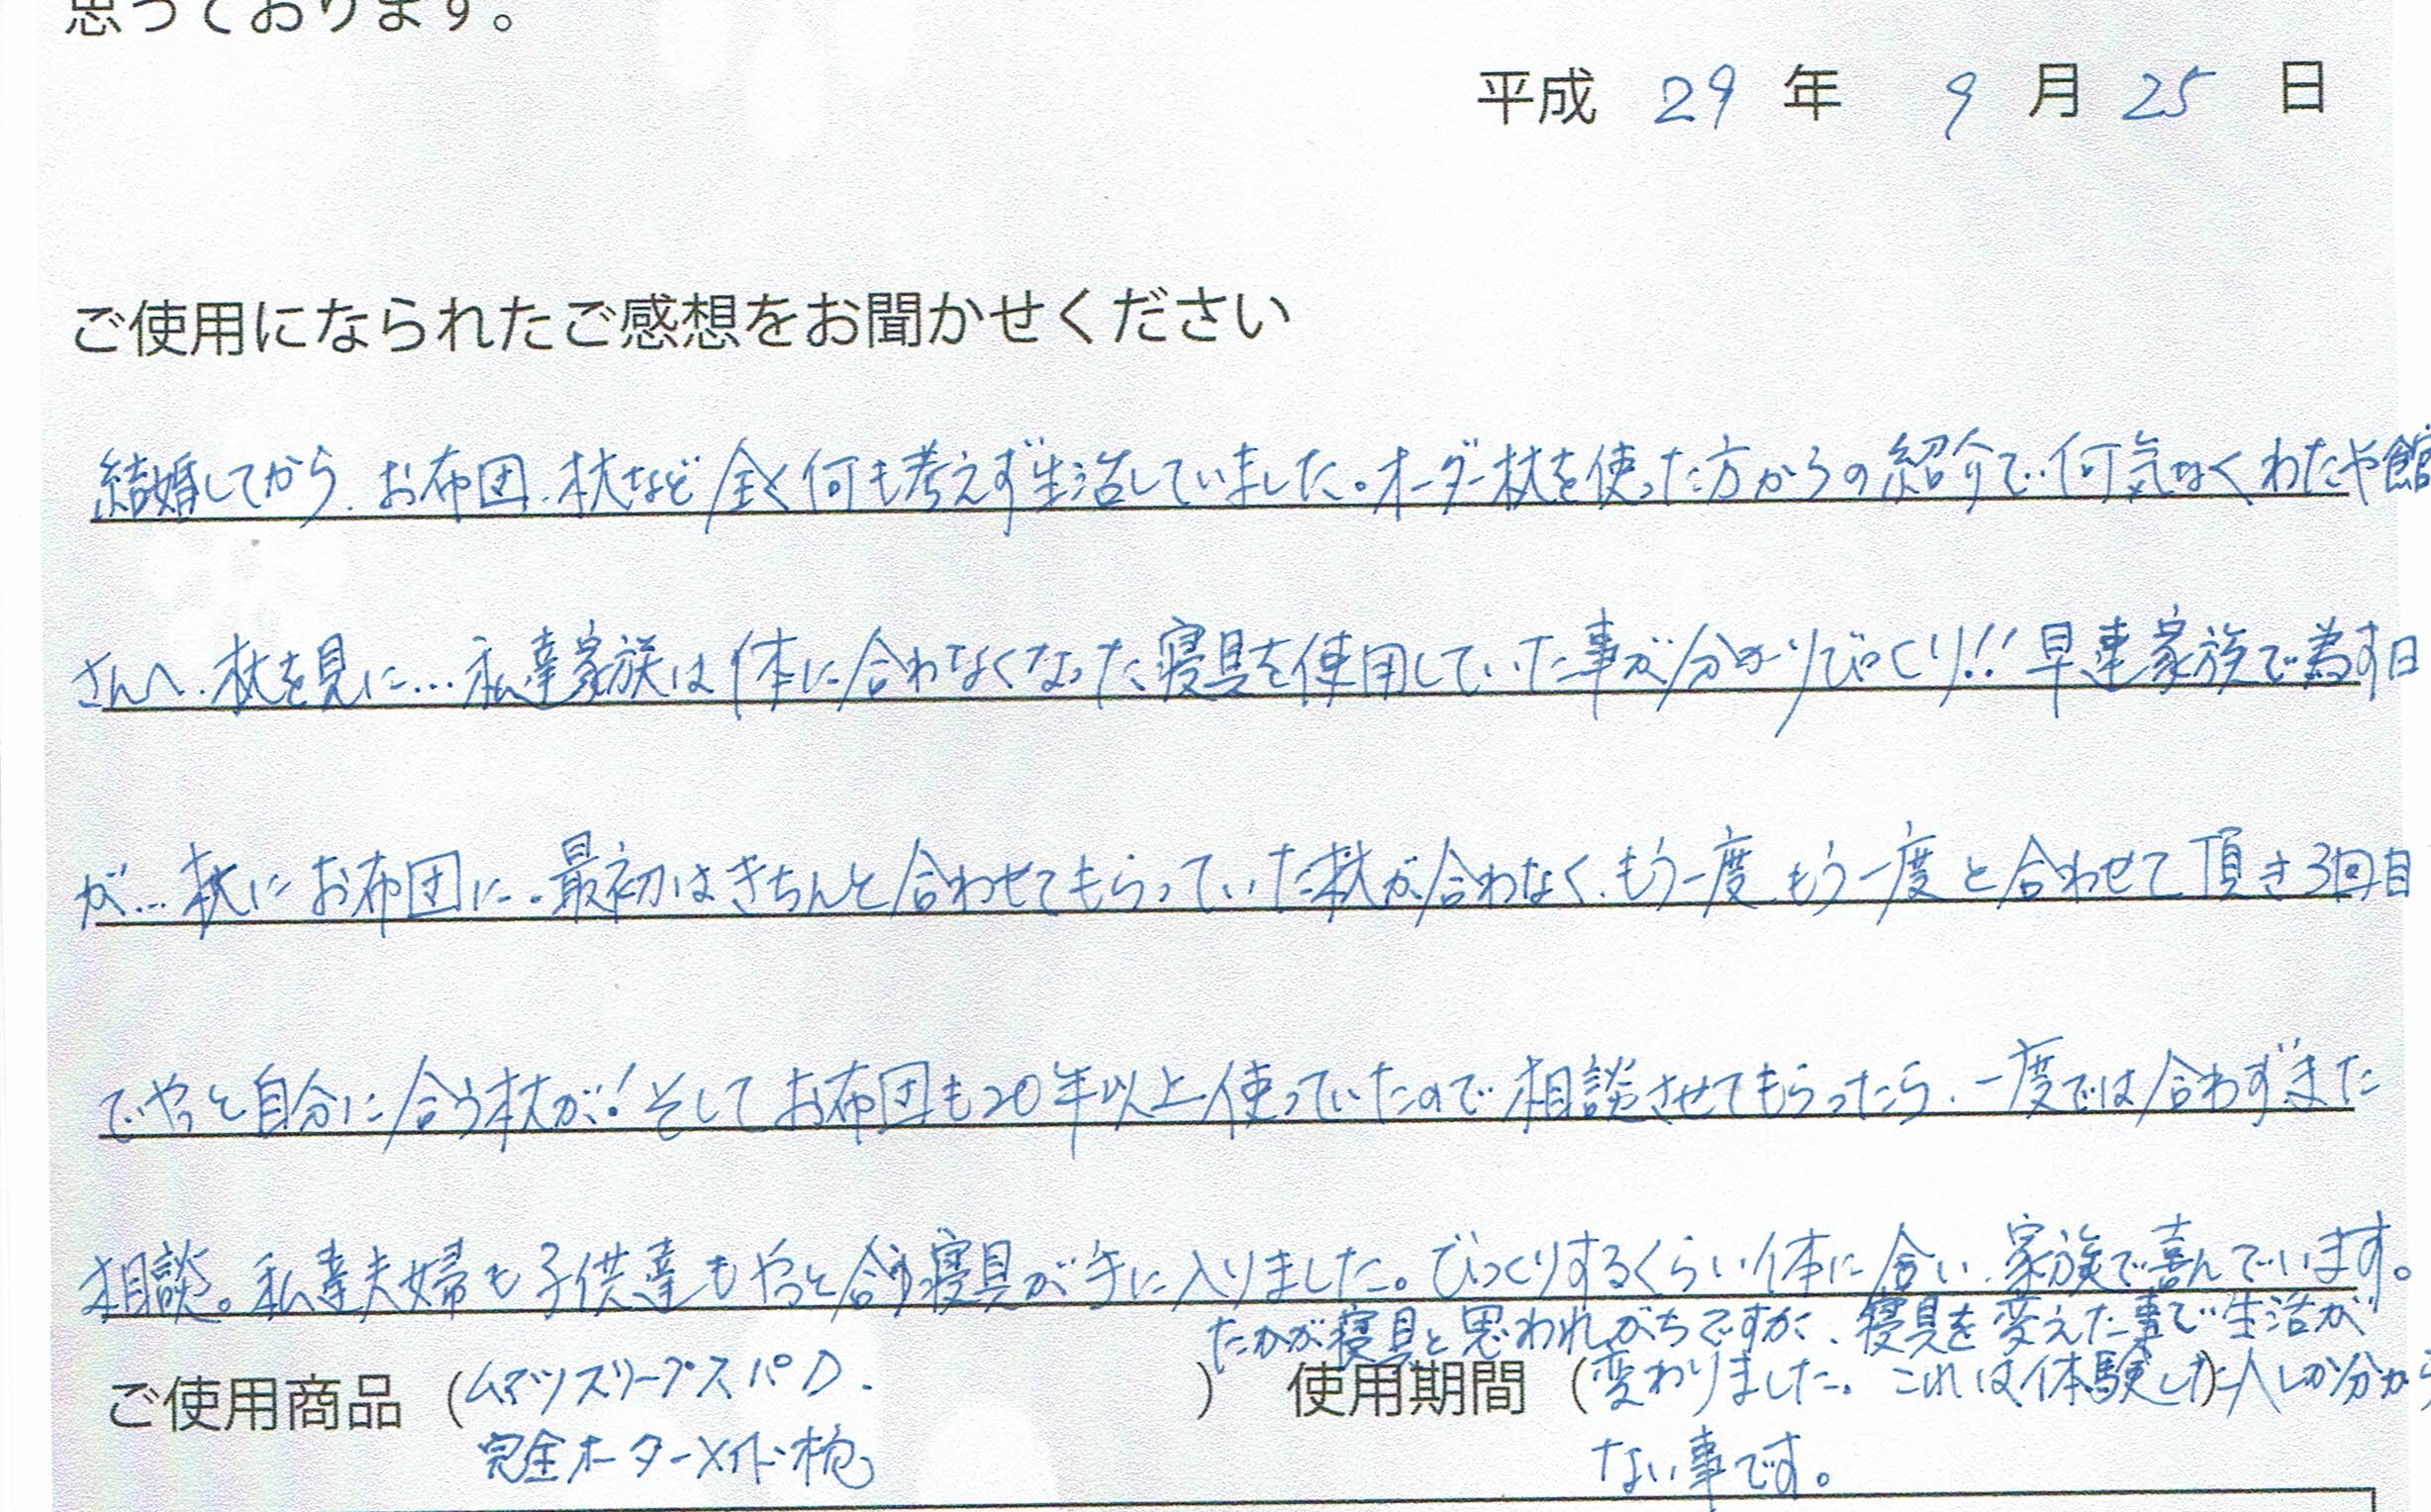 思っております。
平成 29 年 9 月 25 日
ご使用になられたご感想をお聞かせください
結婚してから、お布団、枕など全く何も考えず生活していました。オーダー枕を使った方からの紹介で、何気なくわたや館
さんへ、枕を見に…私達家族は体に合わなくなった寝具を使用していた事が分かりびっくり!!早速家族で為す日
が…枕にお布団に。最初はきちんと合わせてもらっていた枕が合わなく、もう一度、もう一度と合わせて頂き3回目
でやっと自分に合う枕が!そしてお布団も20年以上使っていたので相談させてもらったら、一度では合わずまた
相談。私達夫婦も子供達もやっと合う寝具が手に入りました。びっくりするくらい体に合い、家族で喜んでいます。
たかが寝具と思われがちですが、寝具を変えた事で生活が
変わりました。これは体験した人しか分から
ない事です。
ご使用商品 (ムアツスリープスパD.
完全オーダーメイド枕)
使用期間 ( )